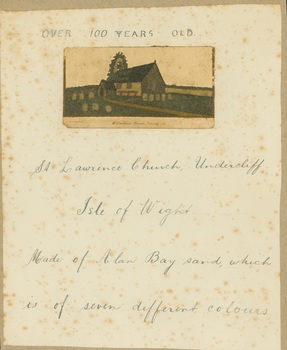 OVER 100 YEARS OLD.
St Lawrence Church, Undercliff
Isle of Wight
Made of Alan Bay sand, which
is of seven different colours